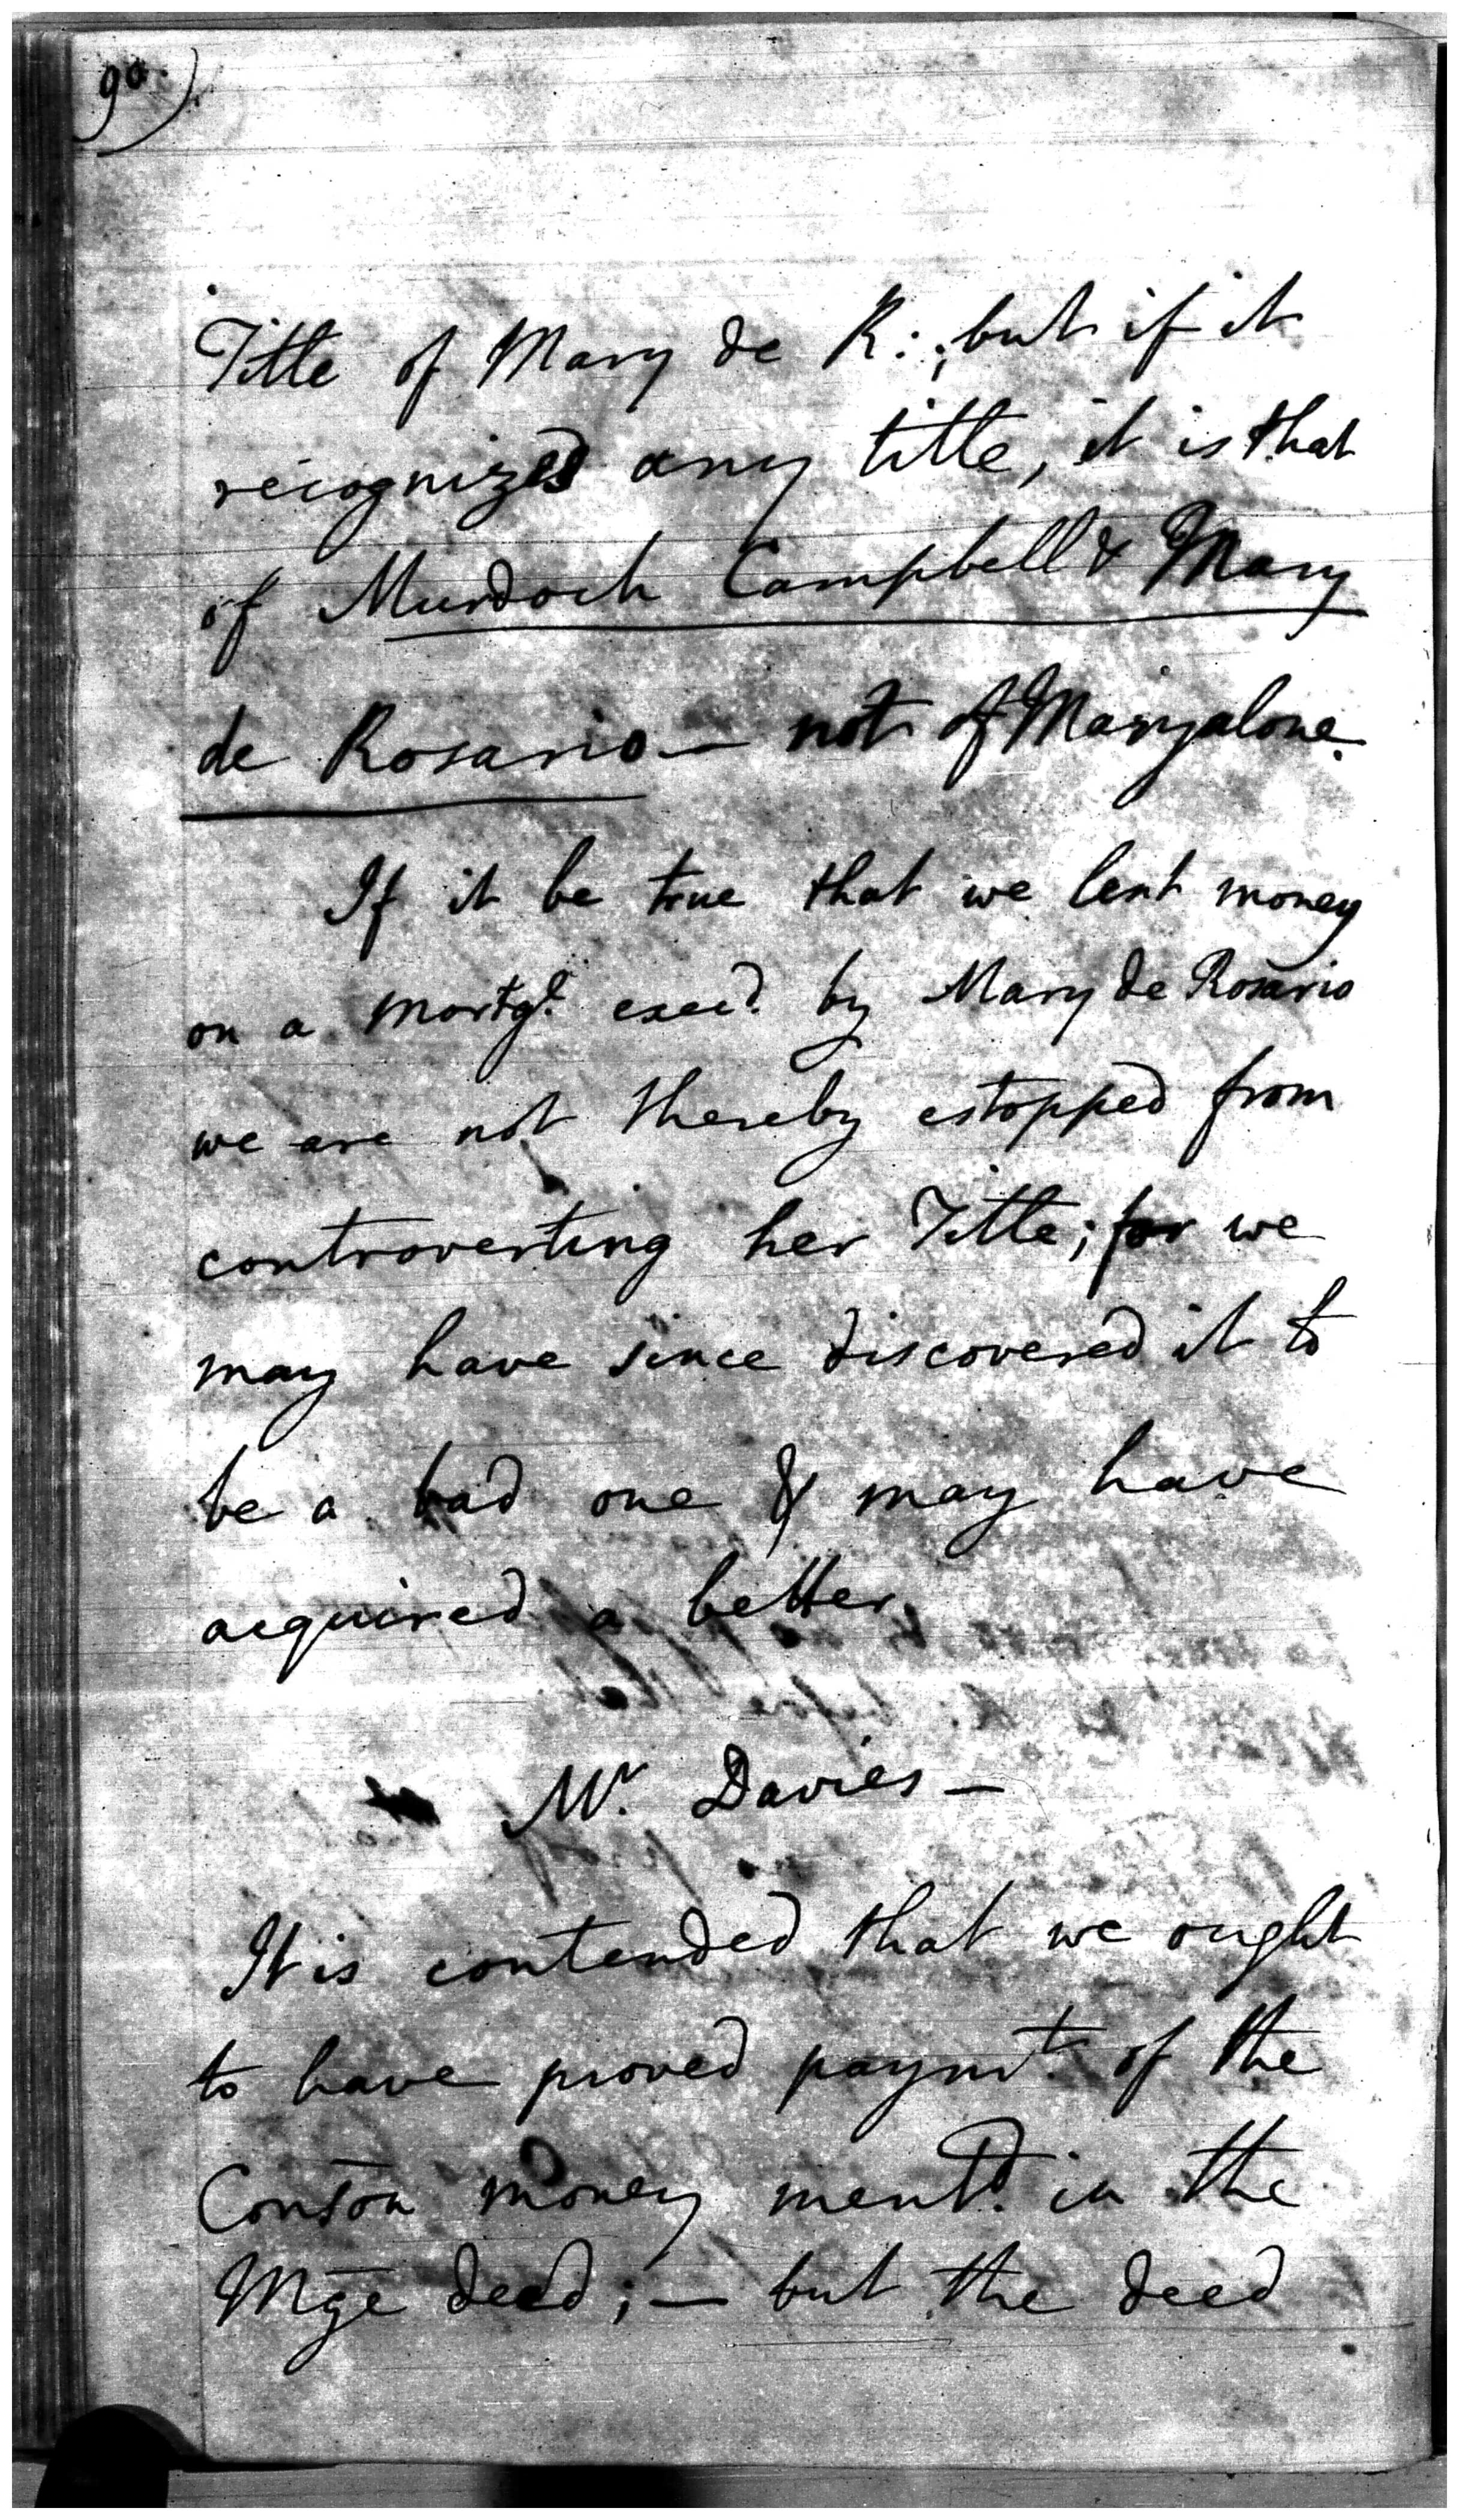 90.)
Title of Mary de R:; but if it
recognizes any title, it is that
of Murdoch Campbell & Mary
de Rosario — not of Mary alone.
If it be true that we lent money
on a Mortge. execd. by Mary de Rosario
we are not thereby estopped from
controverting her Title; for we
may have since discovered it to
be a bad one & may have
acquired a better.
Mr. Davies —
It is contended that we ought
to have proved paymt. of the
Conson money mentd. in the
Mge deed; — but the deed